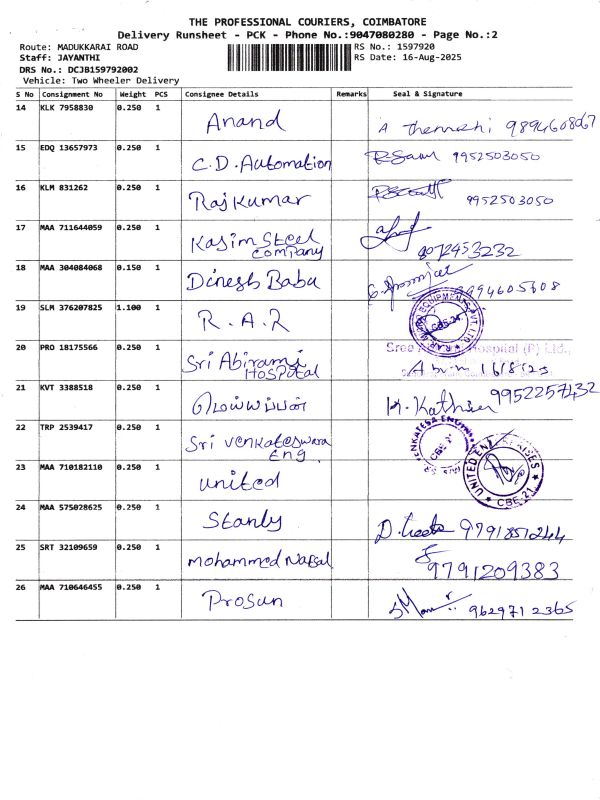 THE PROFESSIONAL COURIERS, COIMBATORE
Delivery Runsheet - PCK - Phone No.:9047080280 - Page No.:2
Route: MADUKKARAI ROAD
RS No.: 1597920
Staff: JAYANTHI
RS Date: 16-Aug-2025
DRS No.: DCJB159792002
Vehicle: Two Wheeler Delivery
S No Consignment No Weight PCS Consignee Details Remarks Seal & Signature
14 KLK 7958830 0.250 1 Anand
15 EDQ 13657973 0.250 1 C.D. Automation 9952503050
16 KLM 831262 0.250 1 Raj Kumar 9952503050
17 MAA 711644059 0.250 1 Kasim Steel
Company 8072453232
18 MAA 304084068 0.150 1 Dinesh Babu
19 SLM 376207825 1.100 1 R.A.R
20 PRO 18175566 0.250 1 Sri Abirami
Hospital
21 KVT 3388518 0.250 1 மெய்யப்பன் 9952257432
22 TRP 2539417 0.250 1 Sri Venkateswara
Eng.
23 MAA 710182110 0.250 1 United
UNITED ENTERPRISES CBE-21
24 MAA 575028625 0.250 1 Stanly 9791851244
25 SRT 32109659 0.250 1 9791209383
26 MAA 710646455 0.250 1 Prosun 9629712365